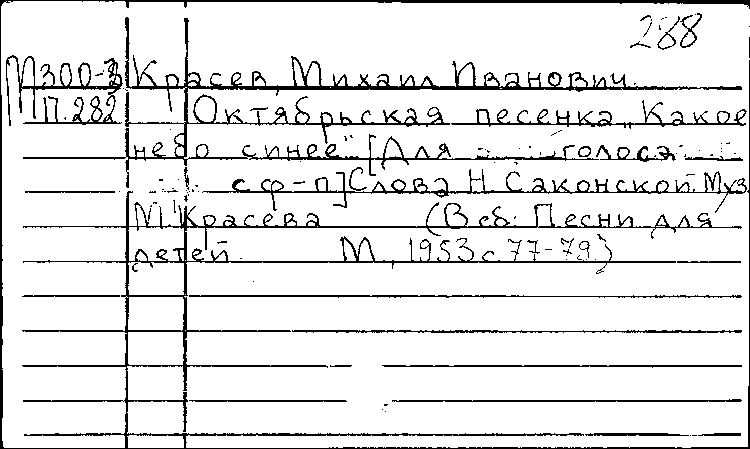 288
М300-3 Красев, Михаил Иванович.
П.282 Октябрьская песенка „Какое
небо синее" [Для голоса
с ф-п] Слова Н. Саконской. Муз.
М. Красева (В сб: Песни для
детей. М., 1953 с. 77-79)